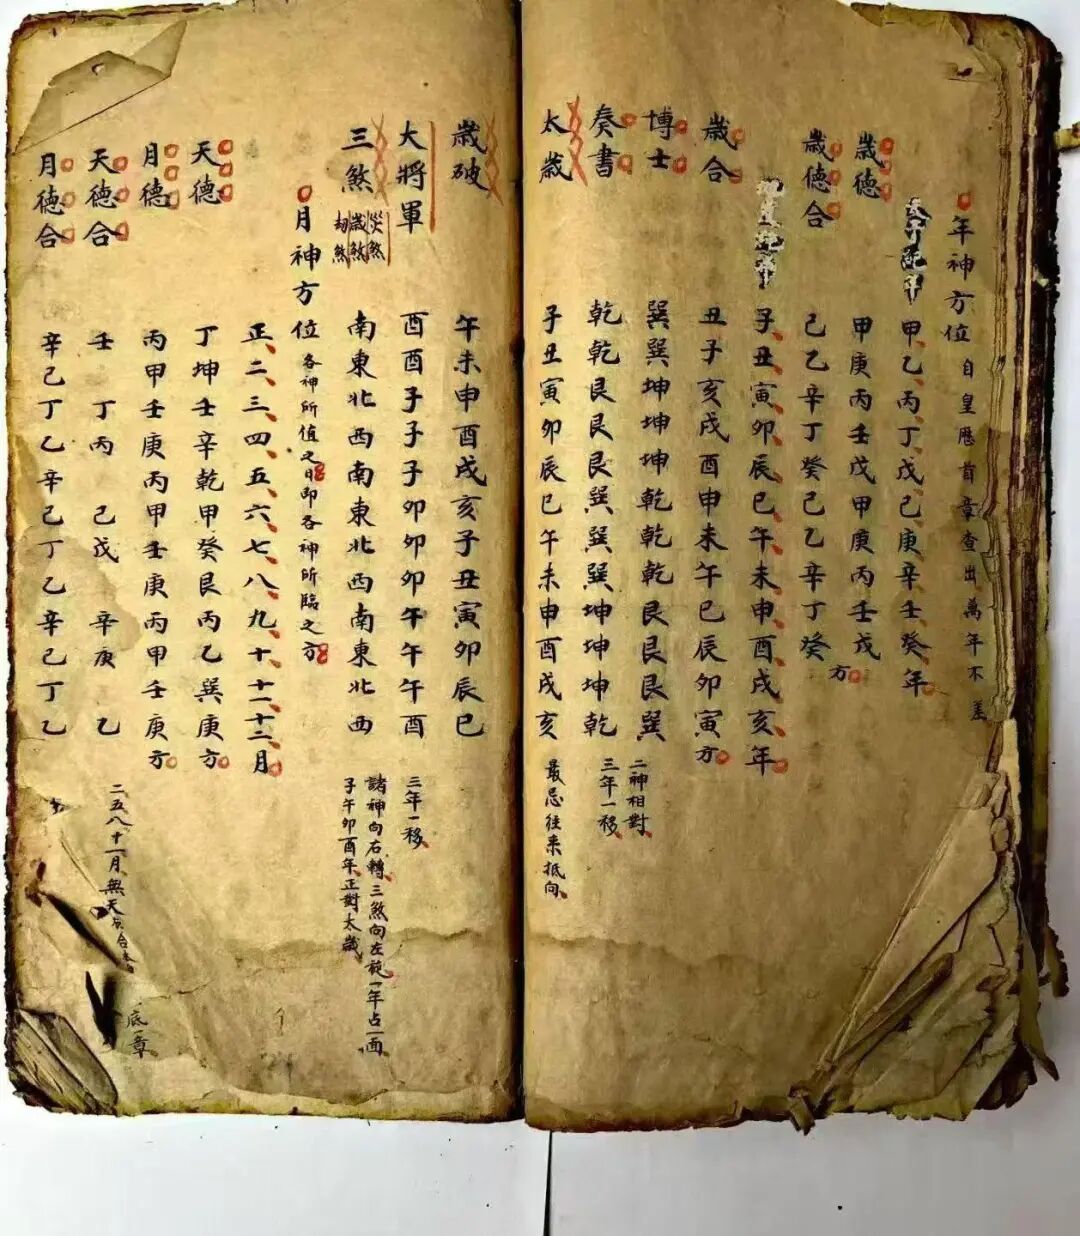 年神方位 自皇歷首章查出萬年不差
配年 甲、乙、丙、丁、戊、己、庚、辛、壬、癸、年
歲德 甲庚丙壬戊甲庚丙壬戊
歲德合 己乙辛丁癸己乙辛丁癸方
子、丑、寅、卯、辰、巳、午、未、申、酉、戌、亥、年
歲合 丑子亥戌酉申未午巳辰卯寅方
博士 巽巽坤坤坤乾乾乾艮艮艮巽 二神相對、
奏書 乾乾艮艮艮巽巽巽坤坤坤乾 三年一移、
太歲 子丑寅卯辰巳午未申酉戌亥 最忌往來抵向、
歲破 午未申酉戌亥子丑寅卯辰巳
大將軍 酉酉子子子卯卯卯午午午酉 三年一移、
三煞 災煞 歲煞 劫煞 南東北西南東北西南東北西 諸神向右轉、三煞向左旋、一年占一面、
子午卯酉年、正對太歲
月神方位 各神所值之日即各神所臨之方
正、二、三、四、五、六、七、八、九、十、十一、十二、月
天德 丁坤壬辛乾甲癸艮丙乙巽庚方
月德 丙甲壬庚丙甲壬庚丙甲壬庚方
天德合 壬 丁丙 己戊 辛庚 乙 二五八十一月、無天德合
月德合 辛己丁乙辛己丁乙辛己丁乙
底章、